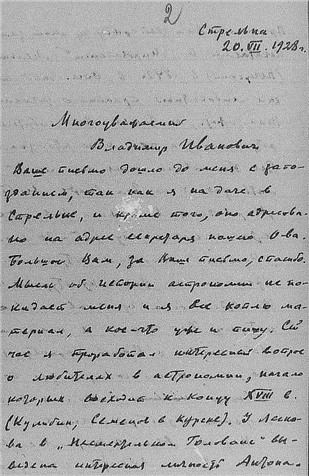 2
Стрельна
20.VII.1928 г.
Многоуважаемый
Владимир Иванович
Ваше письмо дошло до меня с запо-
зданием, так как я на даче в
Стрельне, и кроме того, оно адресова-
но на адрес секретаря нашего О-ва.
Большое Вам, за Ваше письмо, спасибо.
Мысль об истории астрономии не по-
кидает меня и я все коплю ма-
териал, а кое-что уже и пишу. Сей
час я проработал интересный вопрос
о любителях в астрономии, начало
которых восходит к концу XVIII в.
(Кулибин, Семенов в Курске). У Леско-
ва в „Несмертельном Головане" вы-
ведена интересная личность Антона-